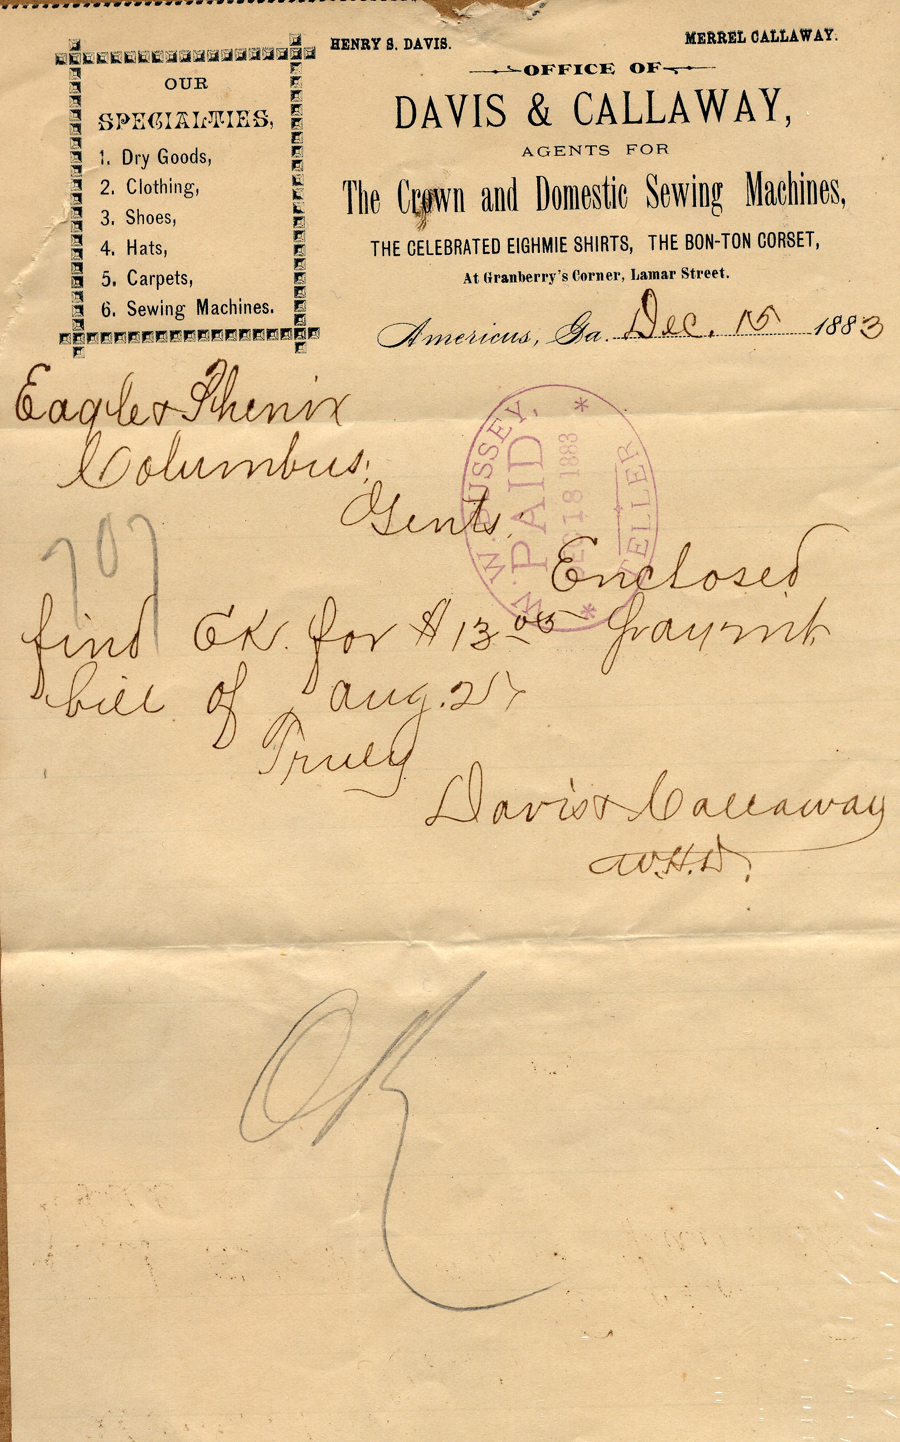 HENRY S. DAVIS. MERREL CALLAWAY.
OFFICE OF
DAVIS & CALLAWAY,
AGENTS FOR
The Crown and Domestic Sewing Machines,
THE CELEBRATED EIGHMIE SHIRTS, THE BON-TON CORSET,
At Granberry's Corner, Lamar Street.
OUR
SPECIALTIES,
1. Dry Goods,
2. Clothing,
3. Shoes,
4. Hats,
5. Carpets,
6. Sewing Machines.
Americus, Ga. Dec. 15 1883
Eagle & Phenix
Columbus,
Gents:
W. W. BUSSEY,
PAID
DEC 18 1883
TELLER
707
Enclosed
find CK. for $13 05 paymnt
bill of aug. 25
Truly
Davis & Callaway
W.H.D.
OK